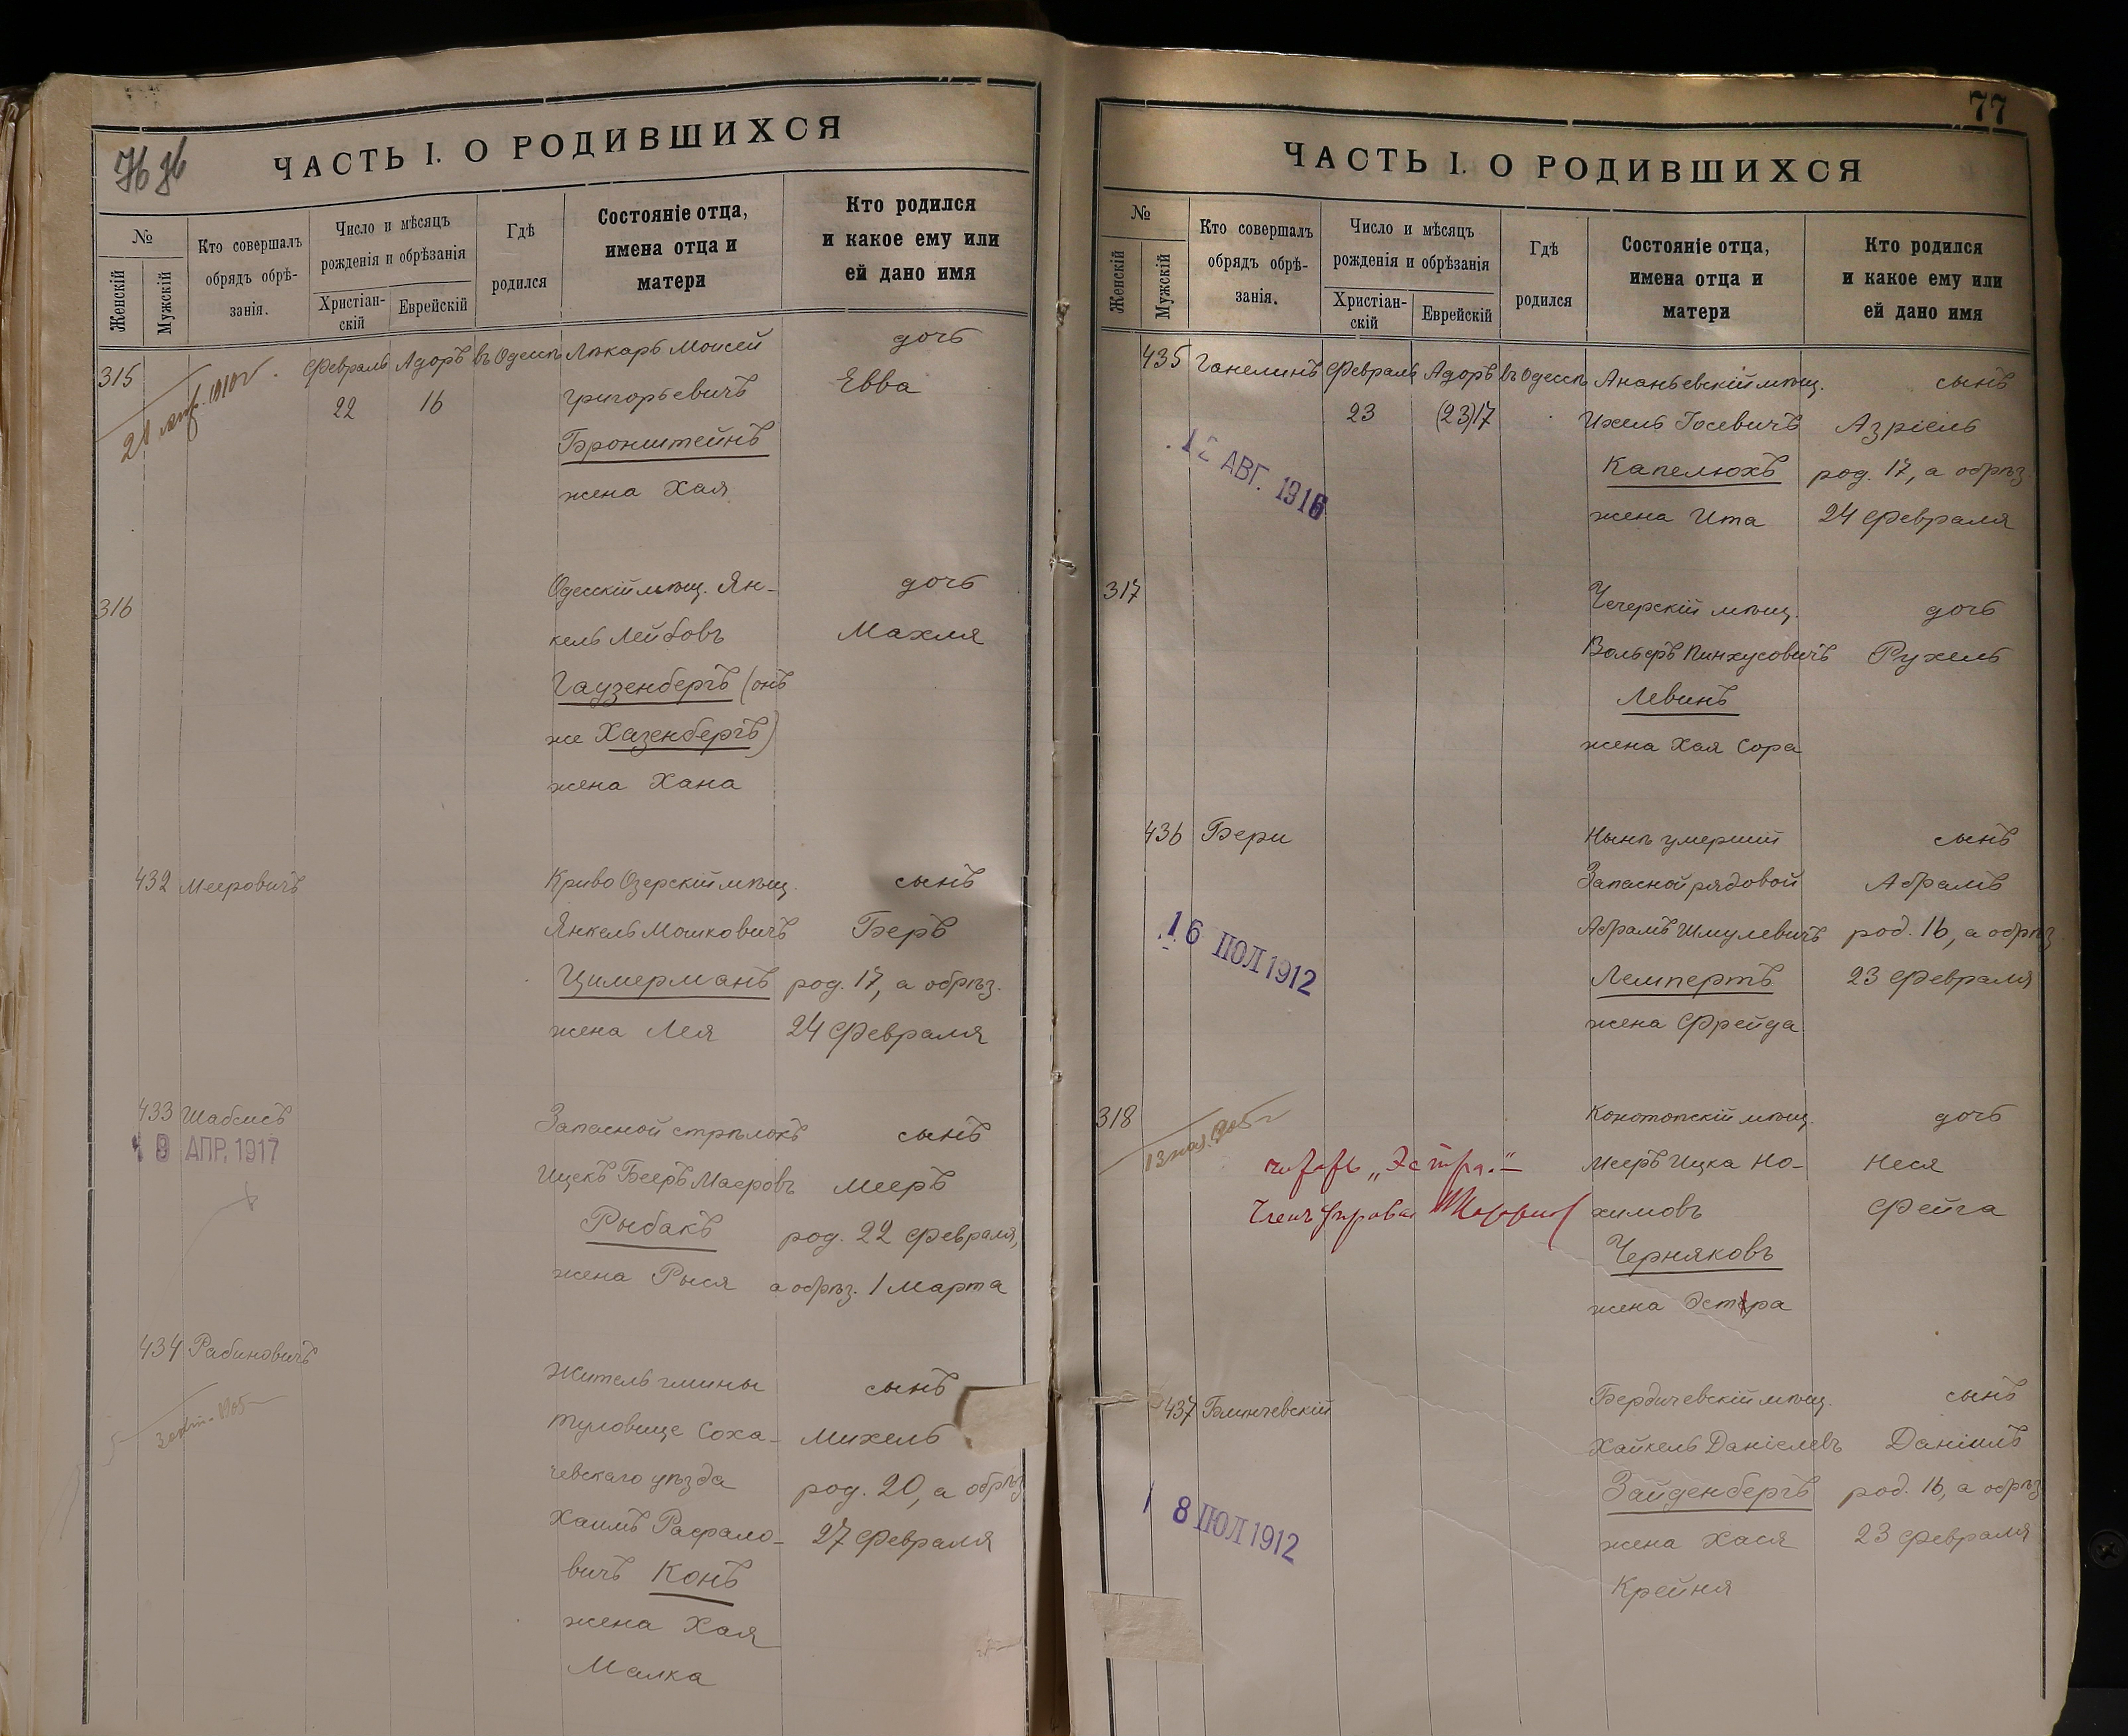 76 76
ЧАСТЬ I. О РОДИВШИХСЯ
№
Женскій
Мужскій
Кто совершалъ
обрядъ обрѣ-
занія.
Число и мѣсяцъ
рожденія и обрѣзанія
Христіан-
скій
Еврейскій
Гдѣ
родился
Состояніе отца,
имена отца и
матери
Кто родился
и какое ему или
ей дано имя
315 Февраль Адоръ въ Одессѣ Лѣкарь Моисей дочь
22 16 Григорьевичъ Евва
1910 г.
Бронштейнъ
жена Хая
316 Одесскій мѣщ. Ян- дочь
кель Лейбовъ Махля
Гаузенбергъ (онъ
же Хазенбергъ)
жена Хана
432 Мееровичъ Криво Озерскій мѣщ. сынъ
Янкель Мошковичъ Беръ
Цимерманъ род. 17, а обрѣз.
жена Лея 24 Февраля
433 Шабсисъ Запасной стрѣлокъ сынъ
АПР. 1917
Ицекъ Бееръ Маеровъ Мееръ
Рыбакъ род. 22 Февраля,
жена Рыся а обрѣз. 1 Марта
434 Рабиновичъ Житель гмины сынъ
1905
Туловище Соха- Михель
чевскаго уѣзда род. 20, а обрѣз
Хаимъ Рафало- 27 Февраля
вичъ Конъ
жена Хая
Малка
77
ЧАСТЬ I. О РОДИВШИХСЯ
№
Женскій
Мужскій
Кто совершалъ
обрядъ обрѣ-
занія.
Число и мѣсяцъ
рожденія и обрѣзанія
Христіан-
скій
Еврейскій
Гдѣ
родился
Состояніе отца,
имена отца и
матери
Кто родился
и какое ему или
ей дано имя
435 Ганелинъ Февраль Адоръ въ Одессѣ Ананьевскій мѣщ. сынъ
23 (23)17 Ихель Іосевичъ Азріель
12 АВГ. 1916
Капелюхъ род. 17, а обрѣз.
жена Ита 24 Февраля
317 Чечерскій мѣщ. дочь
Вольфъ Пинхусовичъ Рухель
Левинъ
жена Хая Сора
436 Бери Нынѣ умершій сынъ
Запасной рядовой Абрамъ
Абрамъ Шмулевичъ род. 16, а обрѣз
16 ІЮЛ 1912
Лемпертъ 23 Февраля
жена Фрейда
318 Конотопскій мѣщ. дочь
1905 г
„Эстра."
Мееръ Ицка Но- Неся
химовъ Фейга
Черняковъ
жена Эстера
437 Блинчевскій Бердичевскій мѣщ. сынъ
Хайкель Даніелевъ Даніилъ
Зайденбергъ род. 16, а обрѣз
18 ІЮЛ 1912
жена Хася 23 Февраля
Крейня